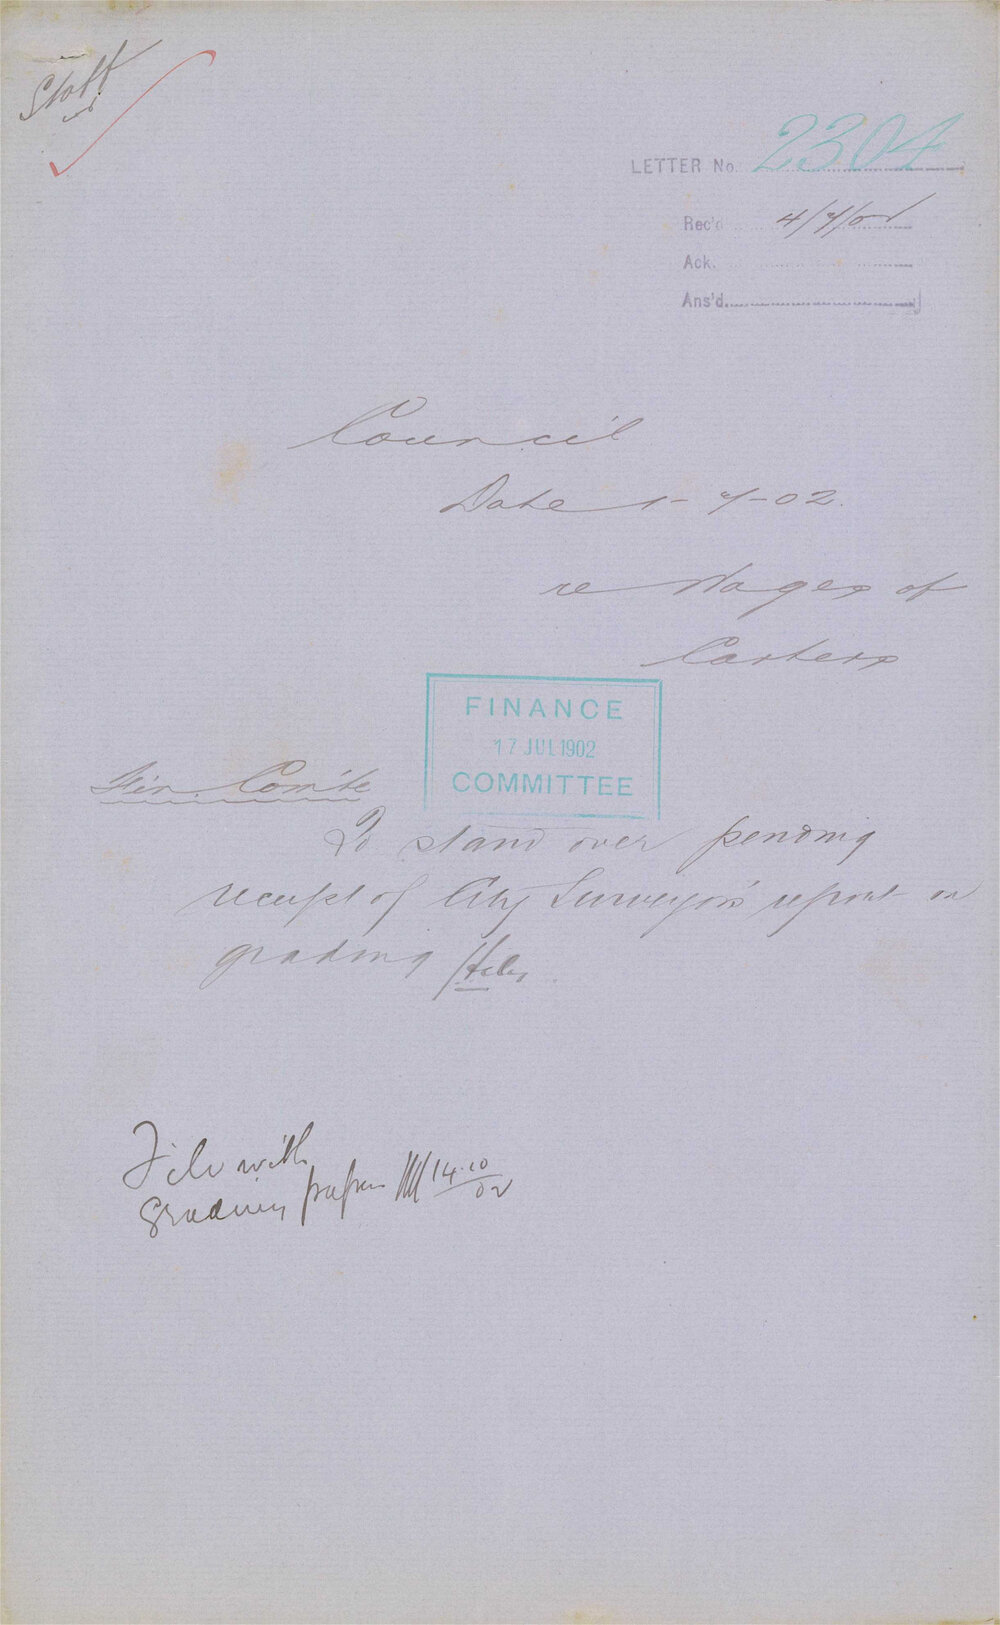 Staff
LETTER No. 2304
Rec'd 4/7/02
Ack.
Ans'd
Council
Date 1-7-02.
re Wages of
Carters
FINANCE
17 JUL 1902
COMMITTEE
Fin. Com'te
To stand over pending
receipt of City Surveyor's report on
grading
File with
grading papers 14.10
02